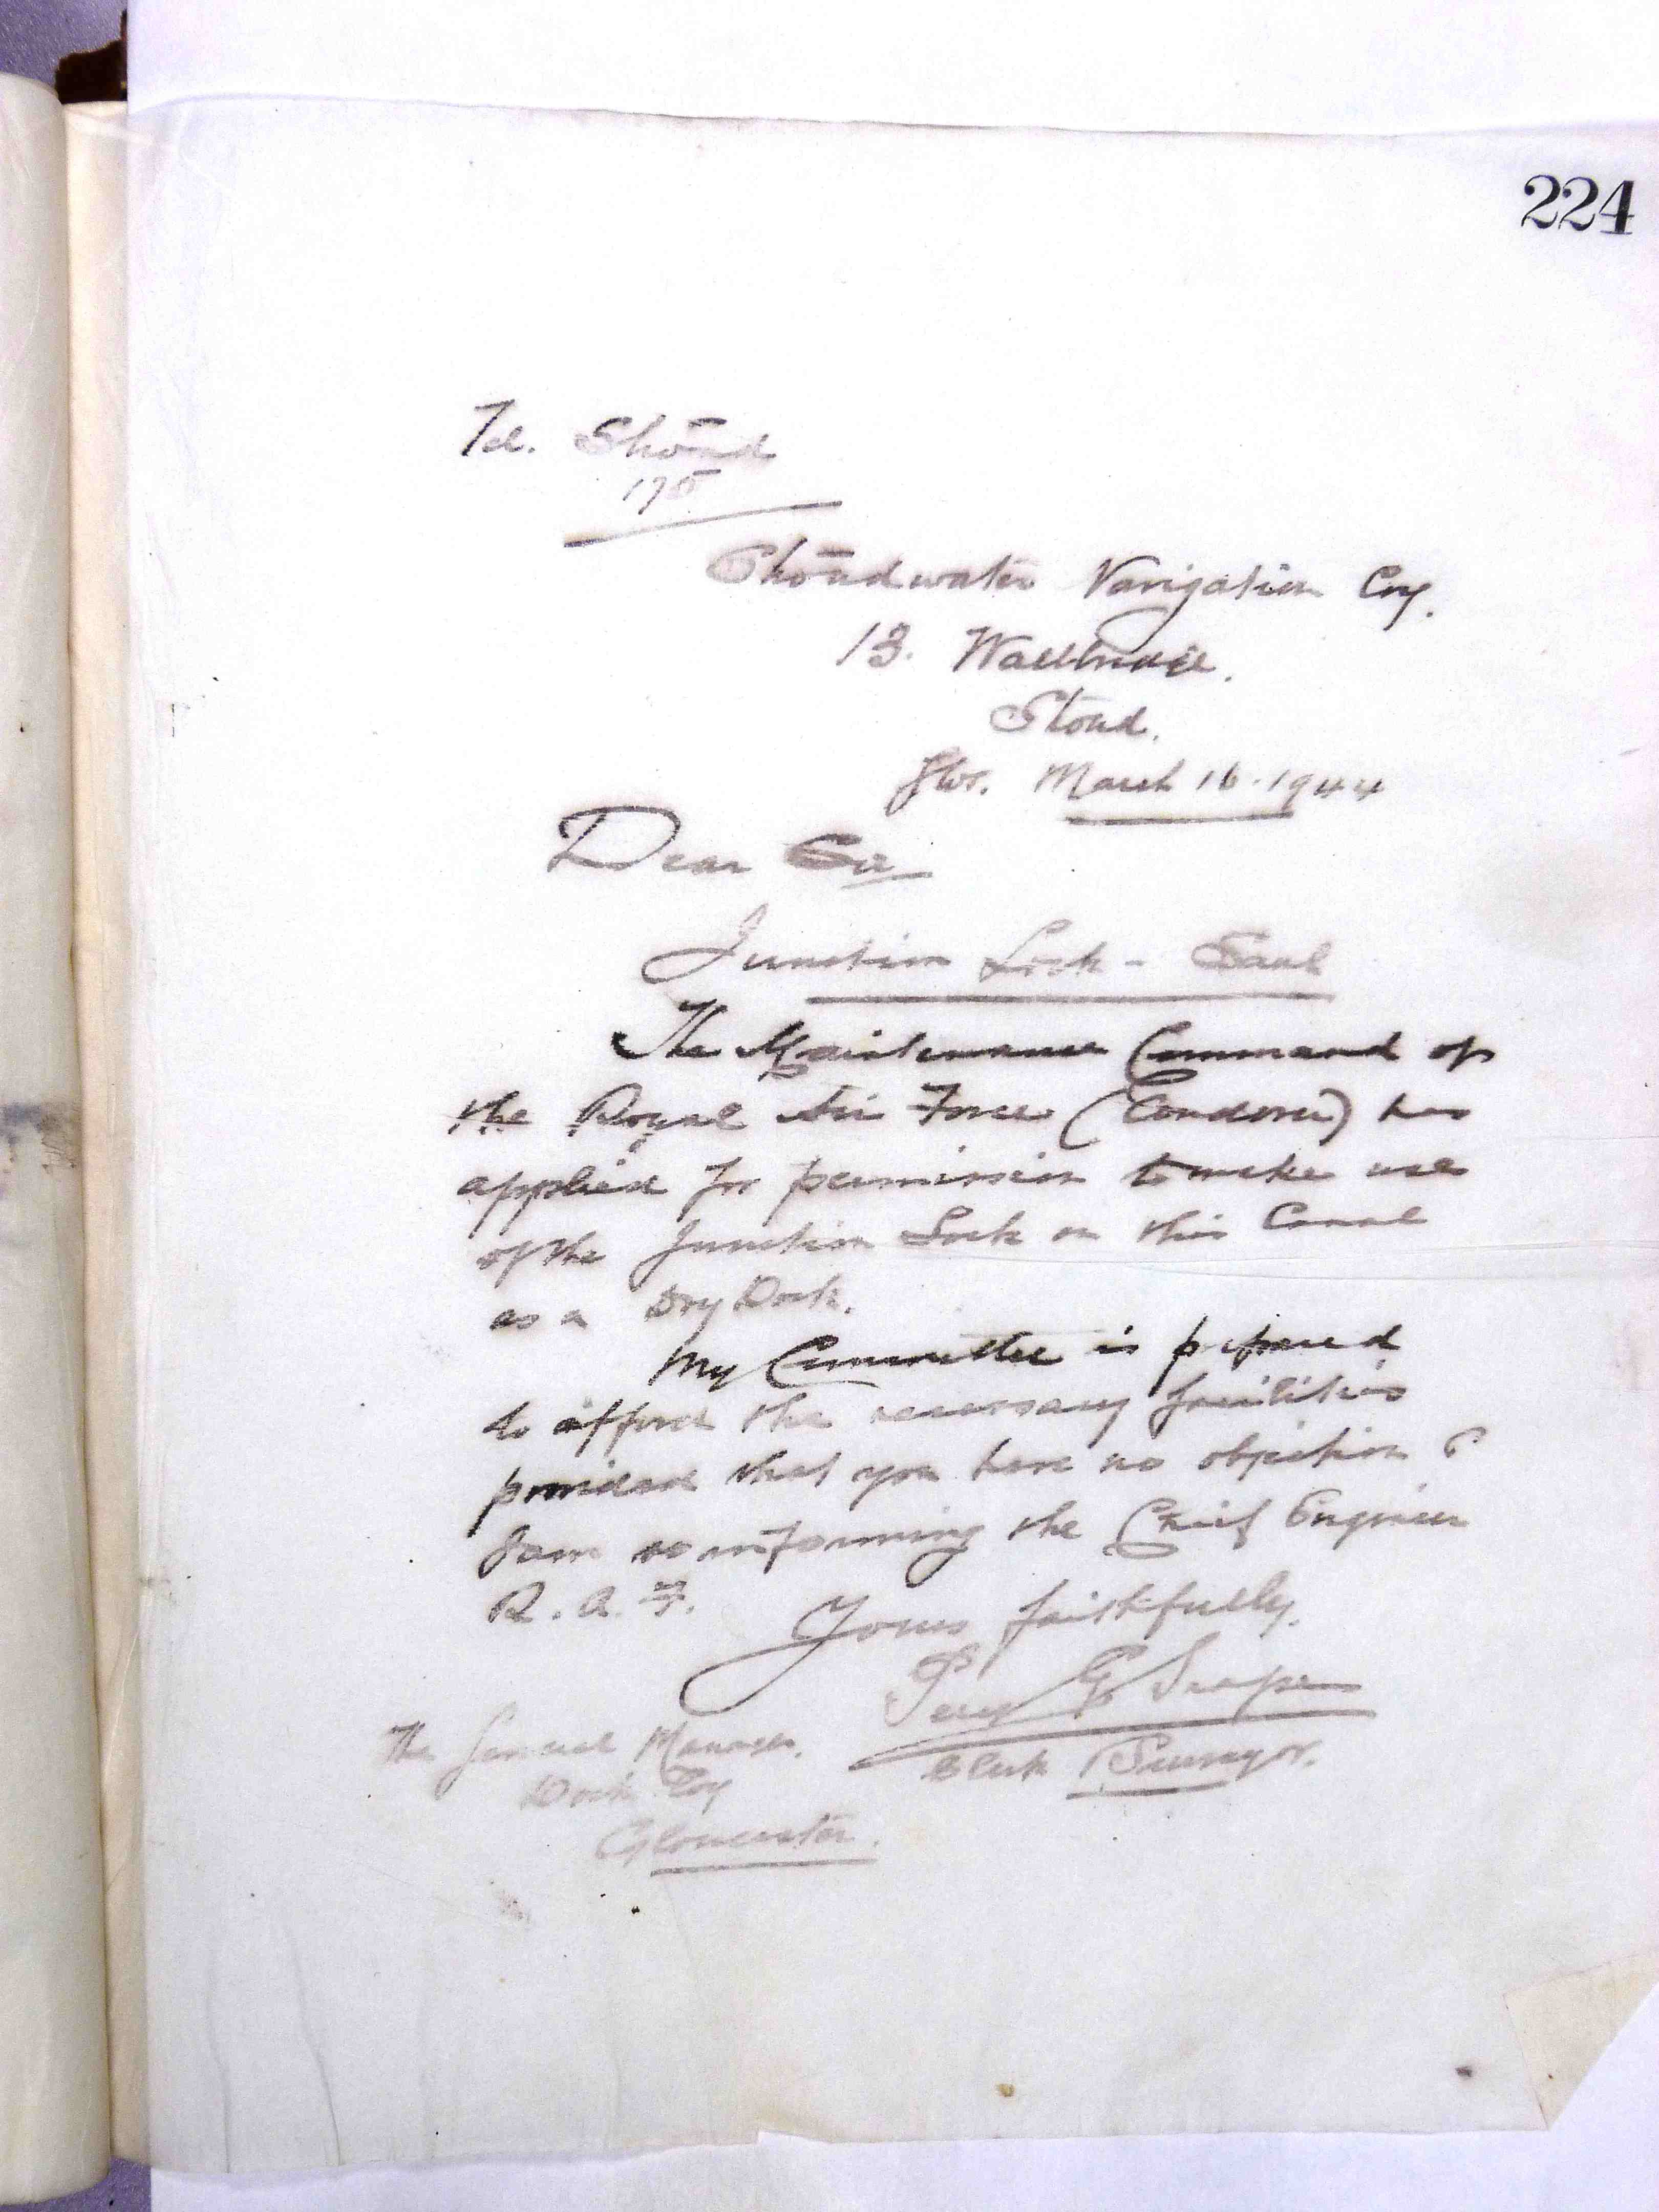 224
Tel. Stroud
175
Stroudwater Navigation Coy.
13. Wallbridge.
Stroud.
Glos. March 16. 1944
Dear Sir
Junction Lock - Saul
The Maintenance Command of
the Royal Air Force (Andover) has
applied for permission to make use
of the Junction Lock on this Canal
as a Dry Dock.
My Committee is prepared
to afford the necessary facilities
provided that you have no objection &
I am so informing the Chief Engineer
R.A.F.
Yours faithfully.
Percy G Snape
Clerk & Surveyor.
The General Manager.
Dock Coy
Gloucester.